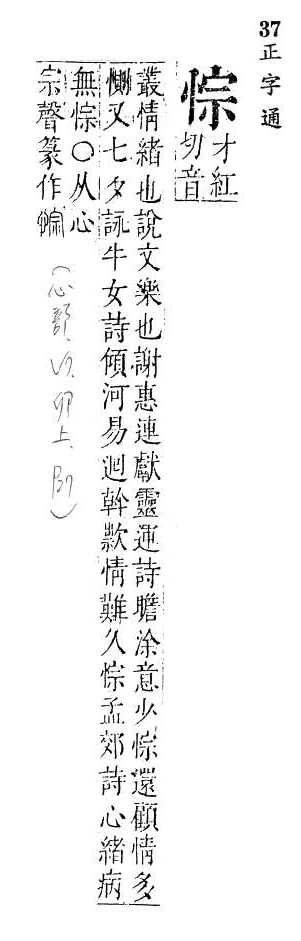 37正字通
悰
才紅
切音
叢情緒也說文樂也謝惠連獻靈運詩瞻涂意少悰還顧情多
惻又七夕詠牛女詩傾河易迴斡款情難久悰孟郊詩心緒病
無悰〇从心
宗聲篆作